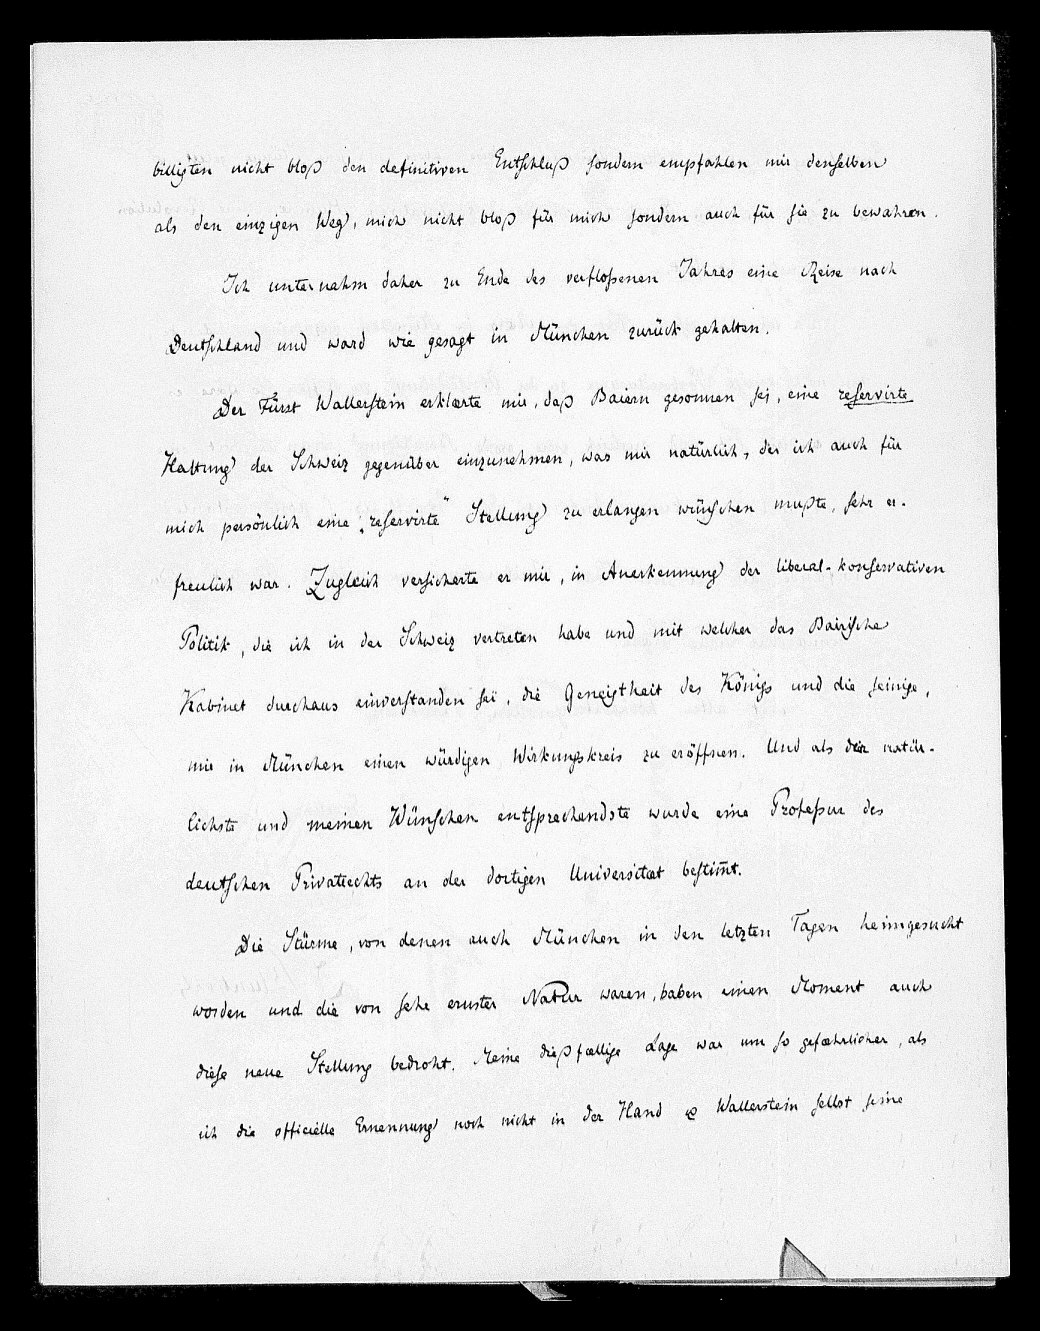 billigten nicht bloß den definitiven Entschluß sondern empfahlen mir denselben
als den einzigen Weg, mich nicht bloß für mich sondern auch für sie zu bewahren.
Ich unternahm daher zu Ende des verfloßenen Jahres eine Reise nach
Deutschland und ward wie gesagt in München zurück gehalten.
Der Fürst Wallerstein erklærte mir, daß Baiern gesonnen sei, eine reservirte
Haltung der Schweiz gegenüber einzunehmen, was mir natürlich, der ich auch für
mich persönlich eine „reservirte" Stellung zu erlangen wünschen mußte, sehr er-
freulich war. Zugleich versicherte er mir, in Anerkennung der liberal-konservativen
Politik, die ich in der Schweiz vertreten habe und mit welcher das Bairische
Kabinet durchaus einverstanden sei, die Geneigtheit des Königs und die seinige,
mir in München einen würdigen Wirkungskreis zu eröffnen. Und als der natür-
lichste und meinen Wünschen entsprechendste wurde eine Profeßur des
deutschen Privatrechts an der dortigen Universitæt bestim̄t.
Die Stürme, von denen auch München in den letzten Tagen heimgesucht
worden und die von sehr ernster Natur waren, haben einen Moment auch
diese neue Stellung bedroht. Meine dießfællige Lage war um so gefæhrlicher, als
ich die officielle Ernennung noch nicht in der Hand & Wallerstein selbst seine